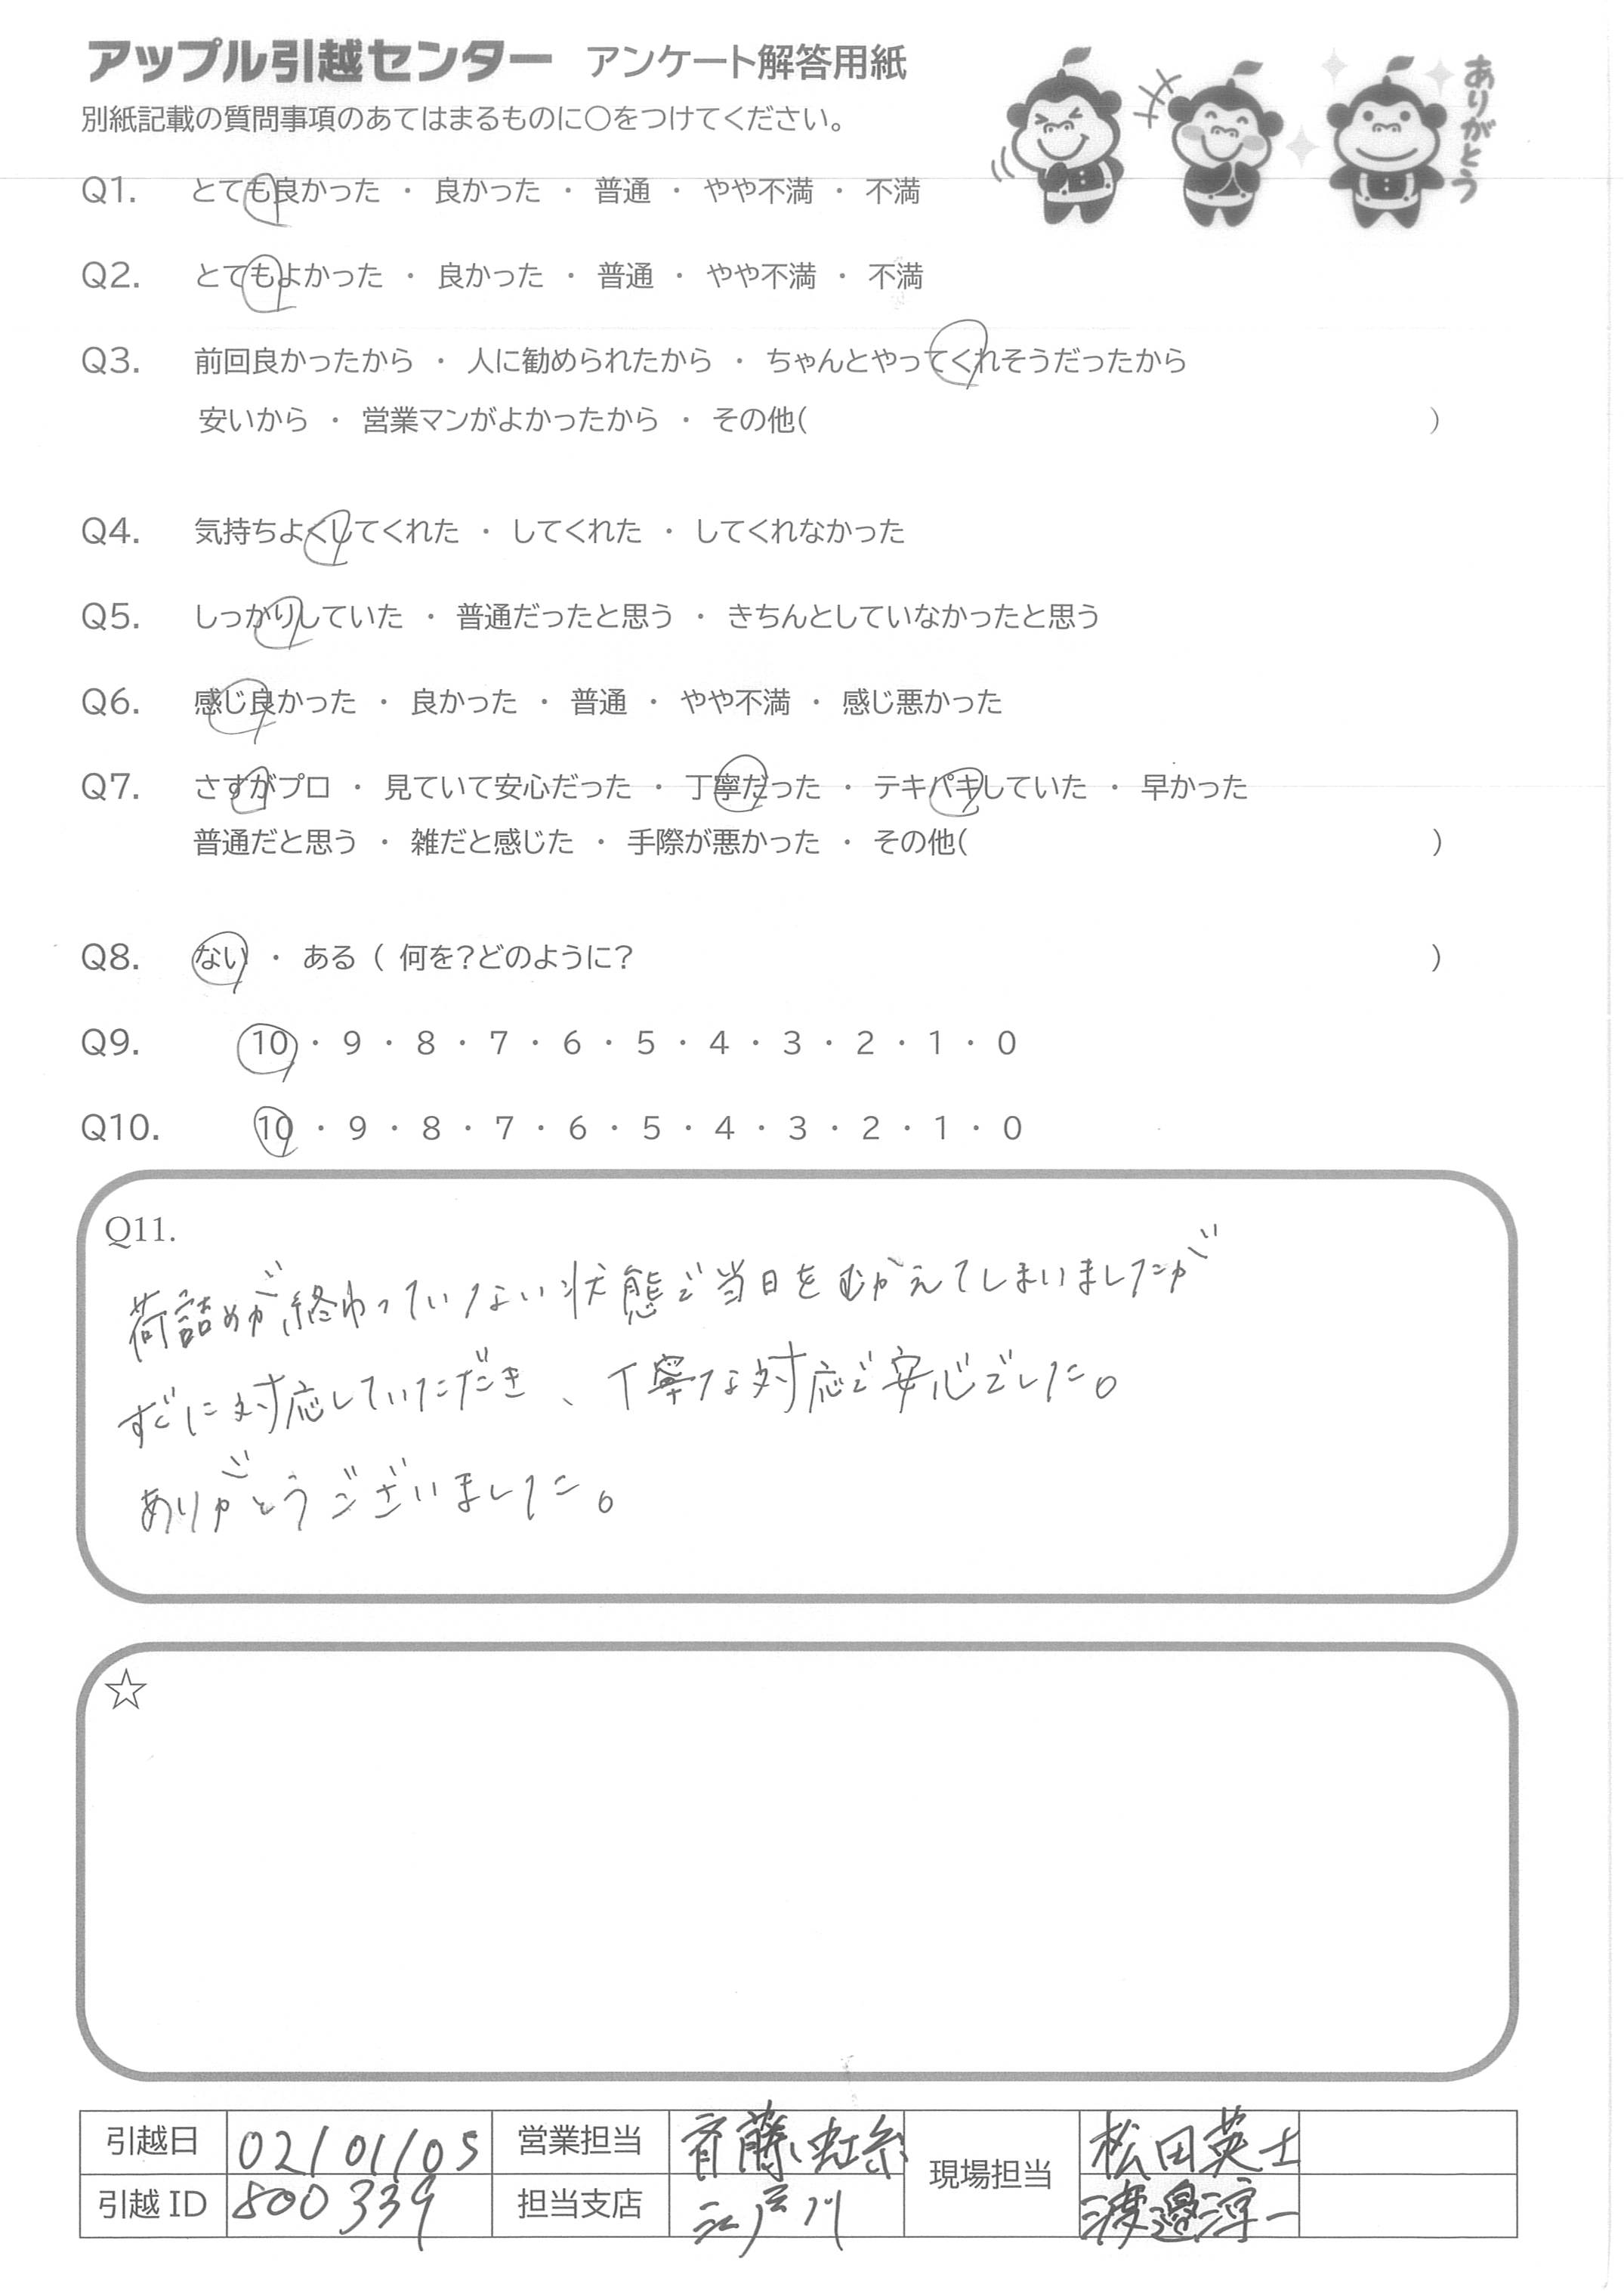 アップル引越センター アンケート解答用紙
ありがとう
別紙記載の質問事項のあてはまるものに〇をつけてください。
Q1. とても良かった ・ 良かった ・ 普通 ・ やや不満 ・ 不満
Q2. とてもよかった ・ 良かった ・ 普通 ・ やや不満 ・ 不満
Q3. 前回良かったから ・ 人に勧められたから ・ ちゃんとやってくれそうだったから
安いから ・ 営業マンがよかったから ・ その他( )
Q4. 気持ちよくしてくれた ・ してくれた ・ してくれなかった
Q5. しっかりしていた ・ 普通だったと思う ・ きちんとしていなかったと思う
Q6. 感じ良かった ・ 良かった ・ 普通 ・ やや不満 ・ 感じ悪かった
Q7. さすがプロ ・ 見ていて安心だった ・ 丁寧だった ・ テキパキしていた ・ 早かった
普通だと思う ・ 雑だと感じた ・ 手際が悪かった ・ その他( )
Q8. ない ・ ある ( 何を?どのように? )
Q9. 10 ・ 9 ・ 8 ・ 7 ・ 6 ・ 5 ・ 4 ・ 3 ・ 2 ・ 1 ・ 0
Q10. 10 ・ 9 ・ 8 ・ 7 ・ 6 ・ 5 ・ 4 ・ 3 ・ 2 ・ 1 ・ 0
Q11.
荷詰めが終わっていない状態で当日をむかえてしまいましたが
すぐに対応していただき、丁寧な対応で安心でした。
ありがとうございました。
☆
引越日 02/01/05 営業担当 斉藤虹糸 現場担当 松田英士
引越ID 800339 担当支店 江戸川 渡邉淳一